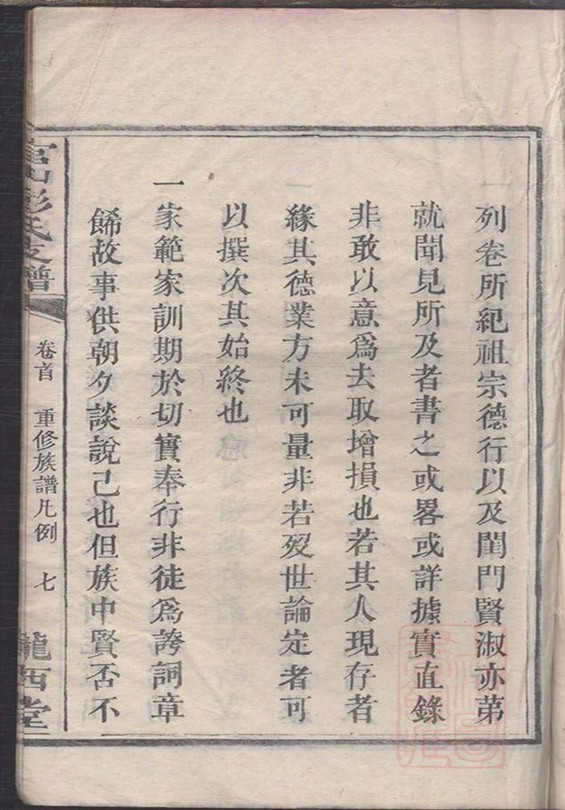 一列卷所紀祖宗德行以及閨門賢淑亦第
就聞見所及者書之或畧或詳據實直錄
非敢以意爲去取增損也若其人現存者
緣其德業方未可量非若歿世論定者可
以撰次其始終也
一家範家訓期於切實奉行非徒爲誇詞章
餙故事供朝夕談說己也但族中賢否不
彭氏支譜
卷首 重修族譜凡例 七
隴西堂